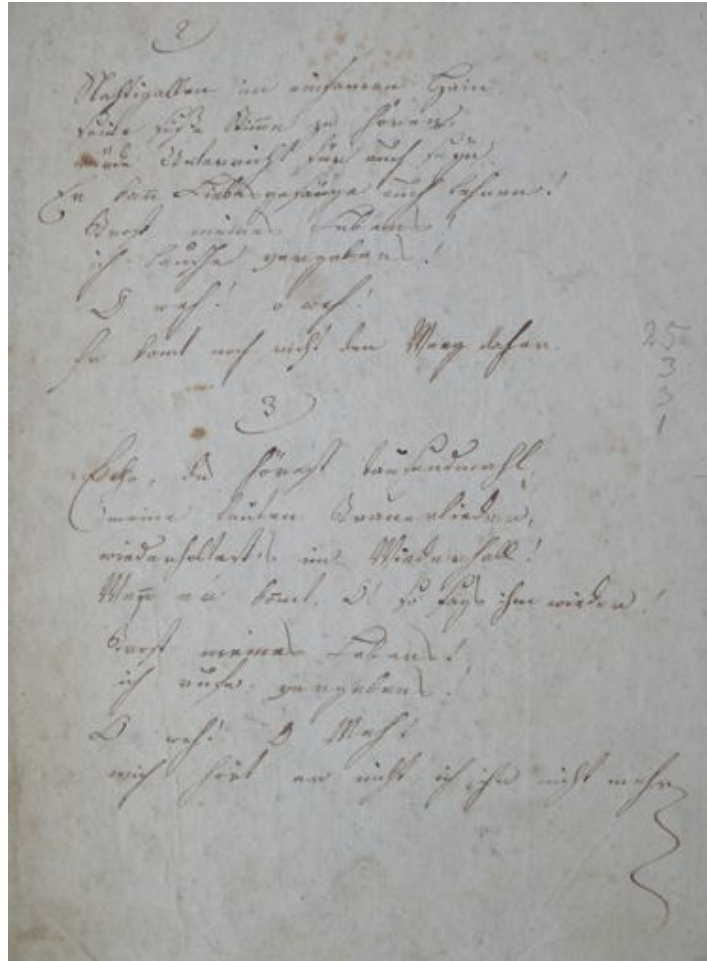 2
Nachtigallen im einsamen Hain
seine süße Stimme zu hören,
würde Unterricht für euch seyn.
Er kann Liebesgesänge euch lehren!
Trost meines Lebens!
ich lausche vergebens!
O weh! o weh!
Er komt noch nicht den Weeg daher.
25
3
3
1
3
Echo, du hörest tausendmahl,
meine lauten Trauerlieder,
wiederholtest im Wiederhall!
Wenn er komt, O! so sags ihm wieder!
Trost meines Lebens!
ich rufe vergebens!
O weh! O Weh!
mich hört er nicht ich ihn nicht mehr